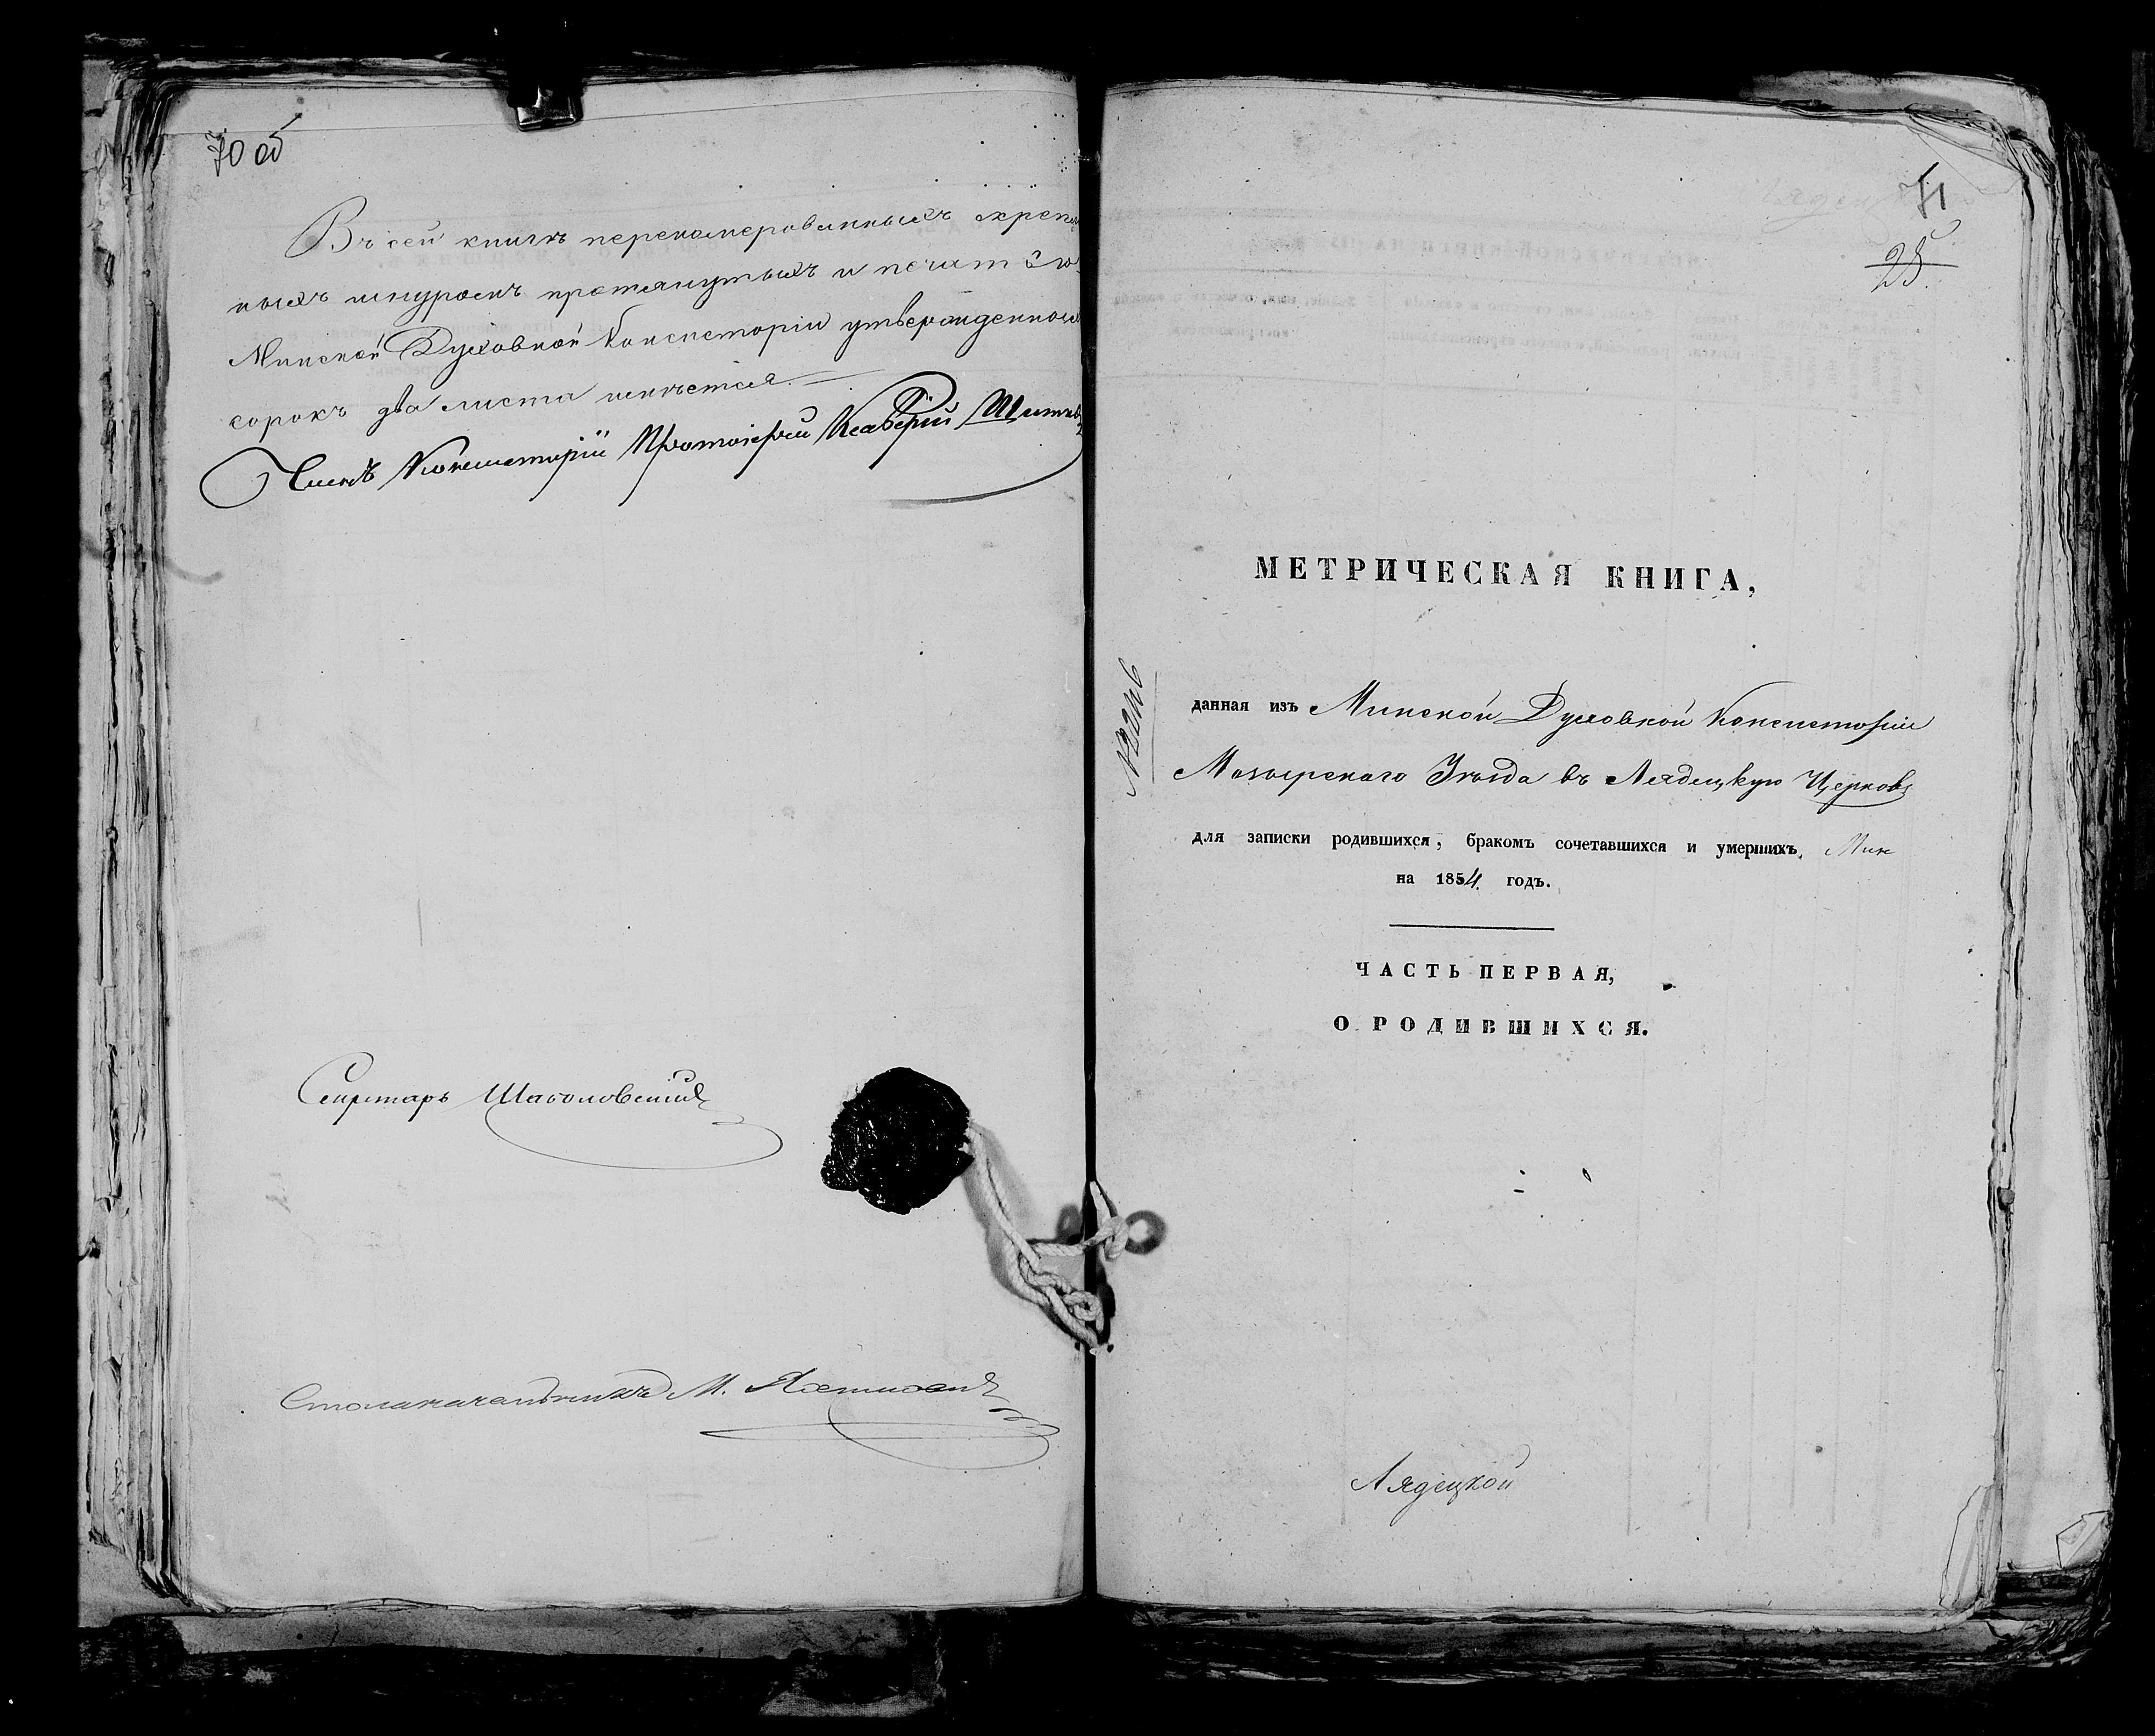 70 об
Въ сей книгѣ перенумерованныхъ скреплен
ныхъ шнуромъ протянутыхъ и печатью
Минской Духовной Консисторіи утвержденныхъ
сорокъ два листа имѣется.
Членъ Консисторіи Протоіерей
Секретарь
Столоначальникъ М.
71
25.
МЕТРИЧЕСКАЯ КНИГА,
данная изъ Минской Духовной Консисторіи
Мозырскаго Уѣзда въ Лядецкую Церковь
для записки родившихся, бракомъ сочетавшихся и умершихъ,
на 1854 годъ.
ЧАСТЬ ПЕРВАЯ,
О РОДИВШИХСЯ.
Лядецкой